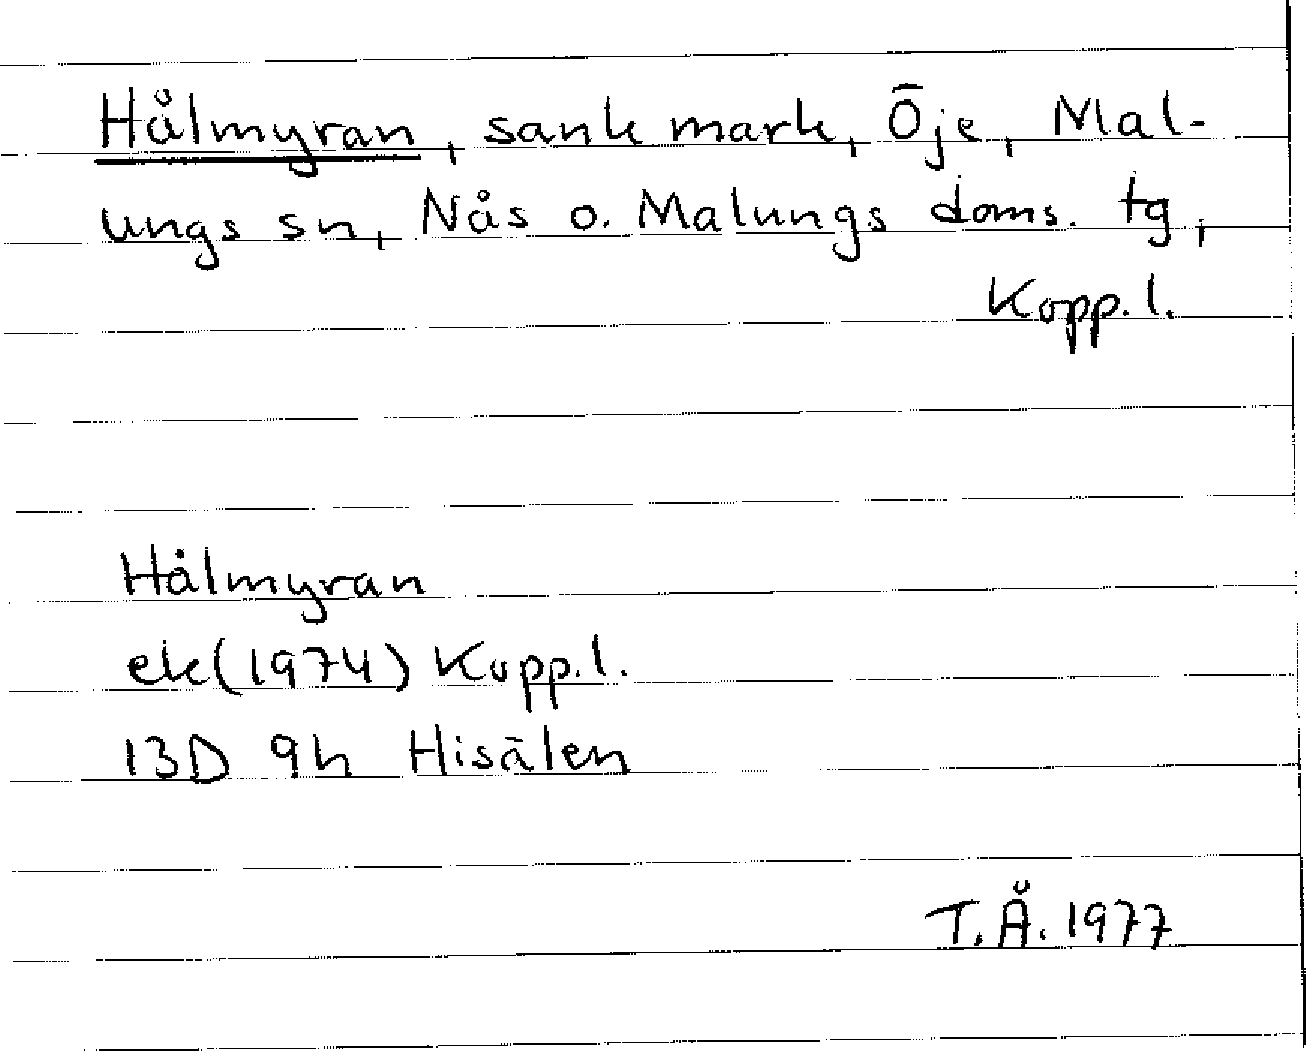 Hålmyran, sank mark, Öje, Mal-
ungs sn, Nås o. Malungs doms. tg,
Kopp. l.
Hålmyran
ek(1974) Kopp. l.
13D 9h Hisälen
T.Å. 1977